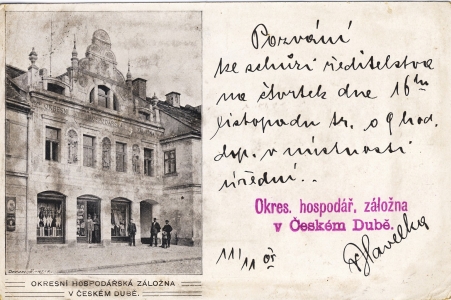 Pozvání
ke schůzi ředitelstva
na čtvrtek dne 16ho
listopadu tr. o 9 hod.
dop. v místnosti
úřední..
Okres. hospodář. záložna
v Českém Dubě.
Havelka
11/11
OKRESNÍ HOSPODÁŘSKÁ ZÁLOŽNA
V ČESKÉM DUBĚ.